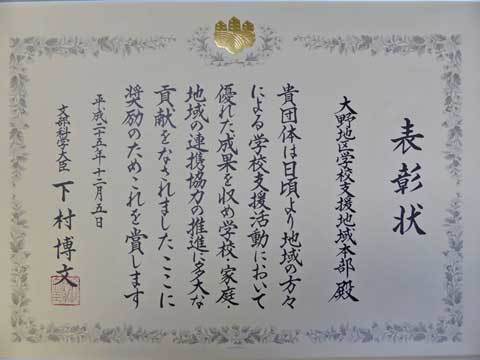 表彰状
大野地区学校支援地域本部 殿
貴団体は日頃より地域の方々
による学校支援活動において
優れた成果を収め学校・家庭・
地域の連携協力の推進に多大な
貢献をなされました ここに
奨励のためこれを賞します
平成二十五年十二月五日
文部科学大臣 下村博文